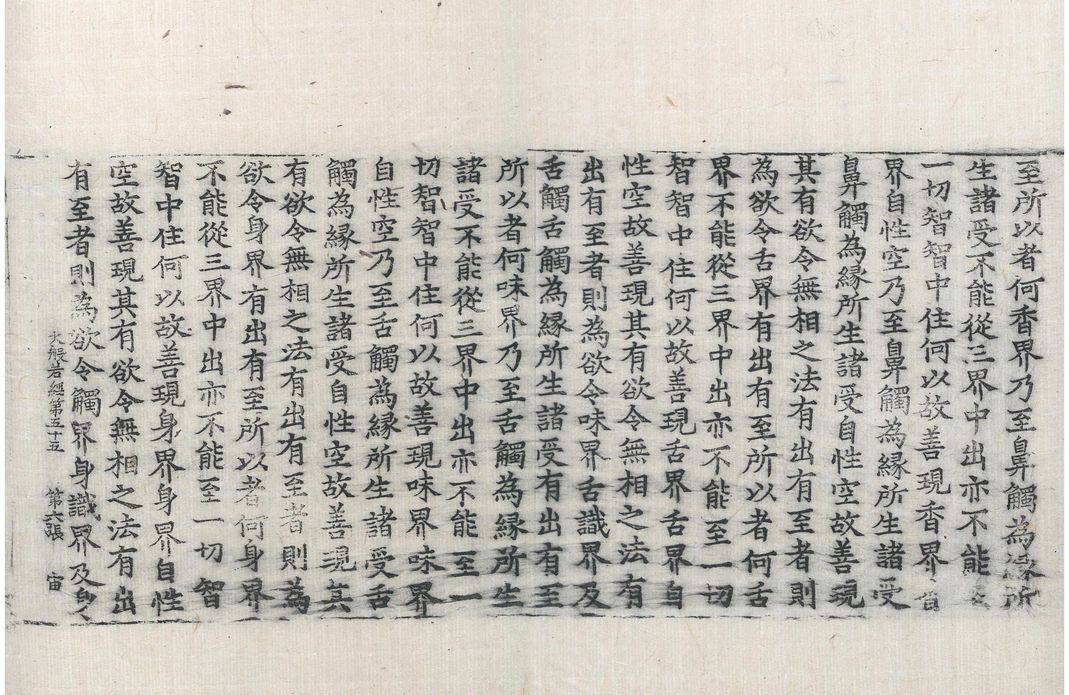 至所以者何香界乃至鼻觸為緣所
生諸受不能從三界中出亦不能
一切智智中住何以故善現香界
界自性空乃至鼻觸為緣所生諸受
鼻觸為緣所生諸受自性空故善現
其有欲令無相之法有出有至者則
為欲令舌界有出有至所以者何舌
界不能從三界中出亦不能至一切
智智中住何以故善現舌界舌界自
性空故善現其有欲令無相之法有
出有至者則為欲令味界舌識界及
舌觸舌觸為緣所生諸受有出有至
所以者何味界乃至舌觸為緣所生
諸受不能從三界中出亦不能至一
切智智中住何以故善現味界味界
自性空乃至舌觸為緣所生諸受舌
觸為緣所生諸受自性空故善現其
有欲令無相之法有出有至者則為
欲令身界有出有至所以者何身界
不能從三界中出亦不能至一切智
智中住何以故善現身界身界自性
空故善現其有欲令無相之法有出
有至者則為欲令觸界身識界及身
大般若經第五十五 第六張 宙